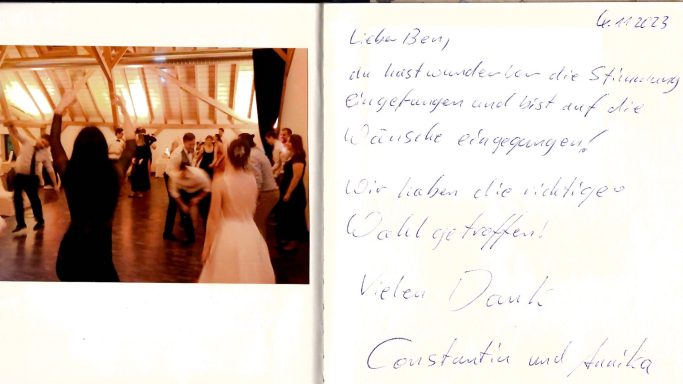 6.11.2023
Lieber Ben,
du hast wunderbar die Stimmung
eingefangen und bist auf die
Wünsche eingegangen!
Wir haben die richtige
Wahl getroffen!
Vielen Dank
Constantin und Annika